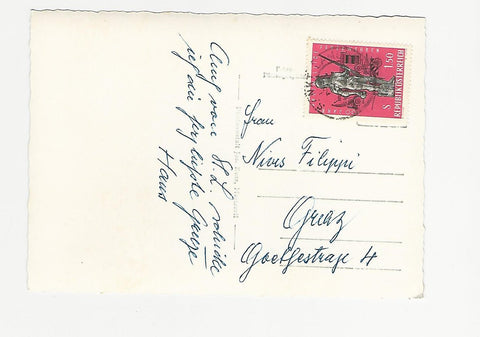 Auch von St. L. schicke
ich dir herzlichste Grüße
Hans
Frau
Nives Filippi
Graz
Goethestraße 4
S 1.50
REPUBLIK ÖSTERREICH